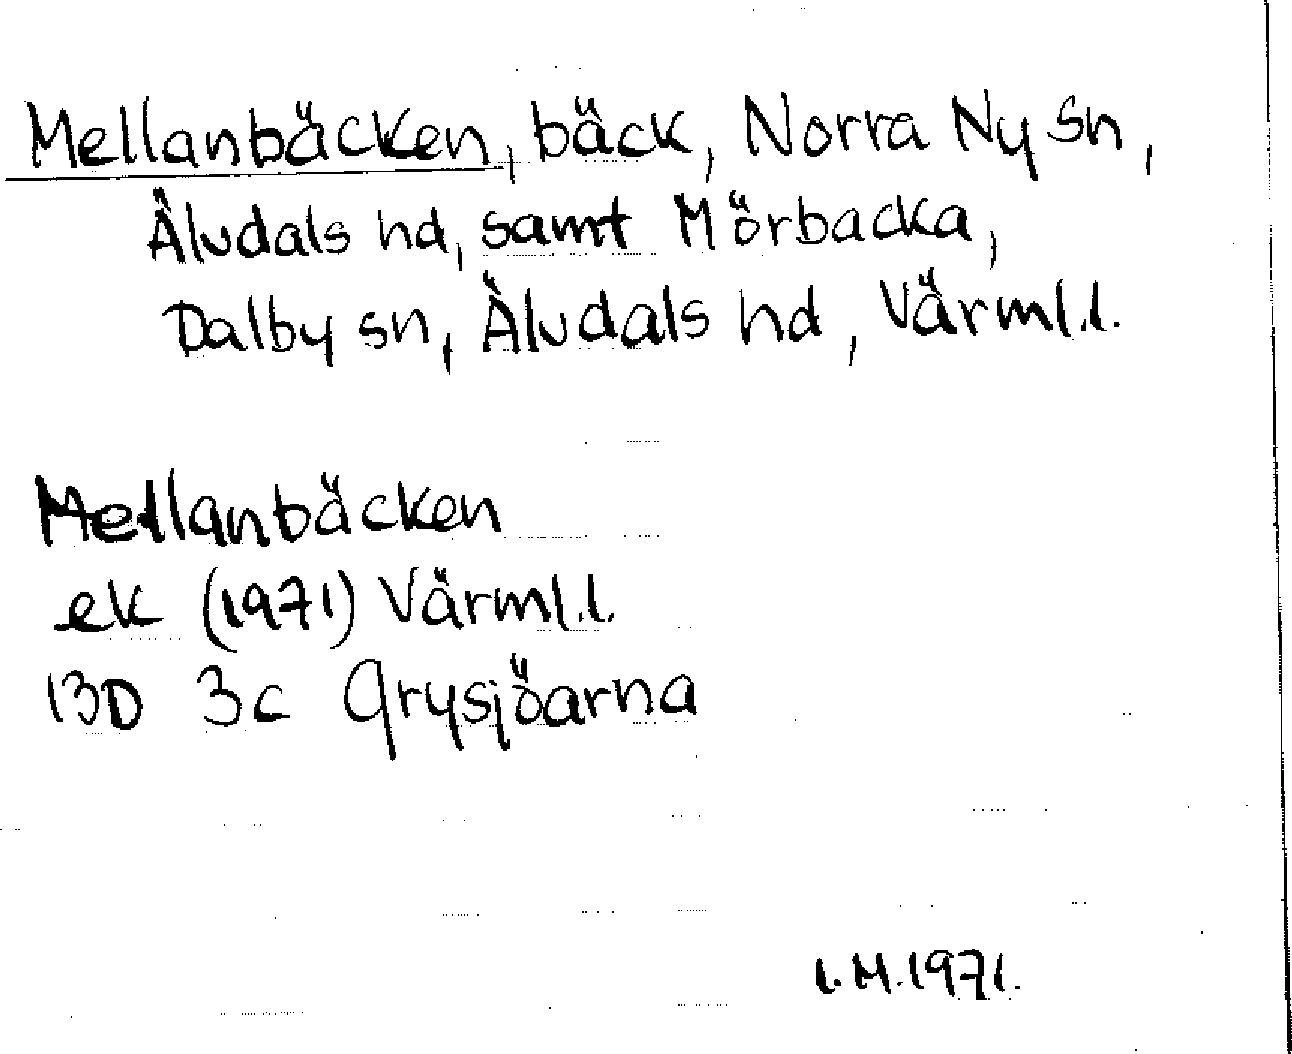 Mellanbäcken, bäck, Norra Ny sn,
Älvdals hd, samt Mörbacka,
Dalby sn, Älvdals hd, Värml.l.
Mellanbäcken
ek (1971) Värml.l.
13D 3c Grysjöarna
I.M.1971.